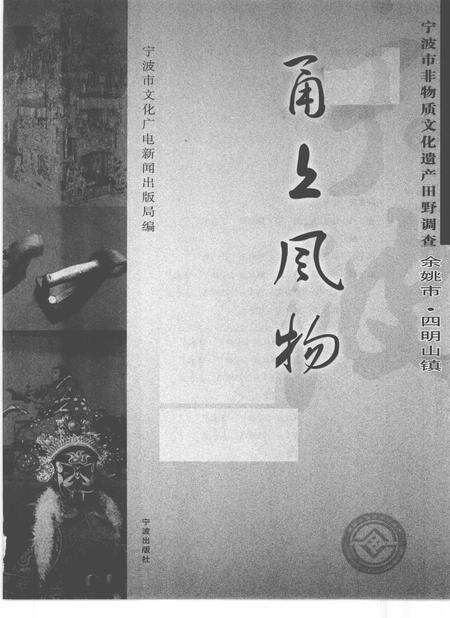 宁波市非物质文化遗产田野调查 余姚市·四明山镇
甬上风物
宁波市文化广电新闻出版局编
宁波出版社